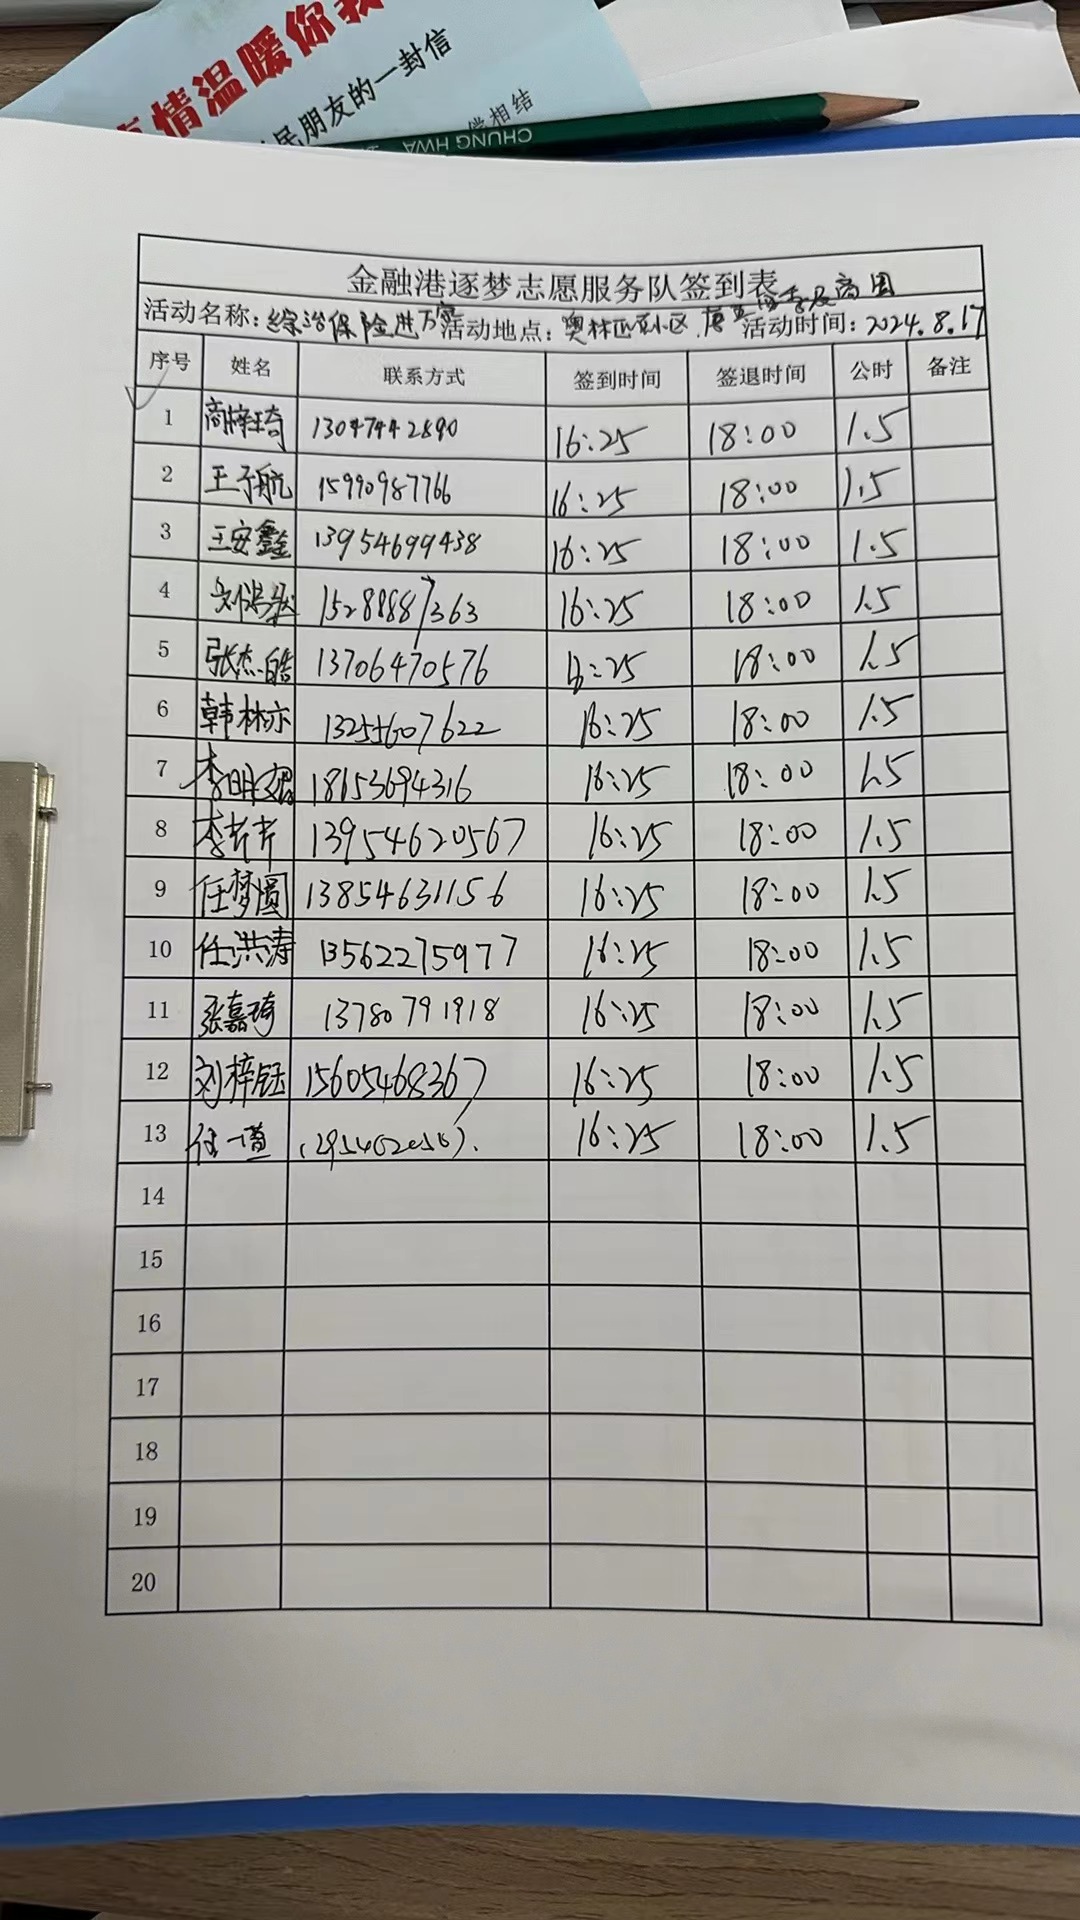 情温暖你我
民朋友的一封信
偿相结
CHUNG HWA
金融港逐梦志愿服务队签到表
活动名称：综治保险进万家 活动地点：奥林匹克小区、 及商圈 活动时间：2024.8.17
序号 姓名 联系方式 签到时间 签退时间 公时 备注
1 商梓琦 13047442890 16:25 18:00 1.5
2 王子航 15990987766 16:25 18:00 1.5
3 王安鑫 13954699438 16:25 18:00 1.5
4 刘 15288887363 16:25 18:00 1.5
5 张杰皓 13706470576 16:25 18:00 1.5
6 韩林亦 13255607622 16:25 18:00 1.5
7 李明 18153694316 16:25 18:00 1.5
8 李芹芹 13954620567 16:25 18:00 1.5
9 任梦圆 13854631156 16:25 18:00 1.5
10 任洪涛 13562275977 16:25 18:00 1.5
11 张嘉琦 13780791918 16:25 18:00 1.5
12 刘梓钰 15605468367 16:25 18:00 1.5
13 任一 16:25 18:00 1.5
14
15
16
17
18
19
20